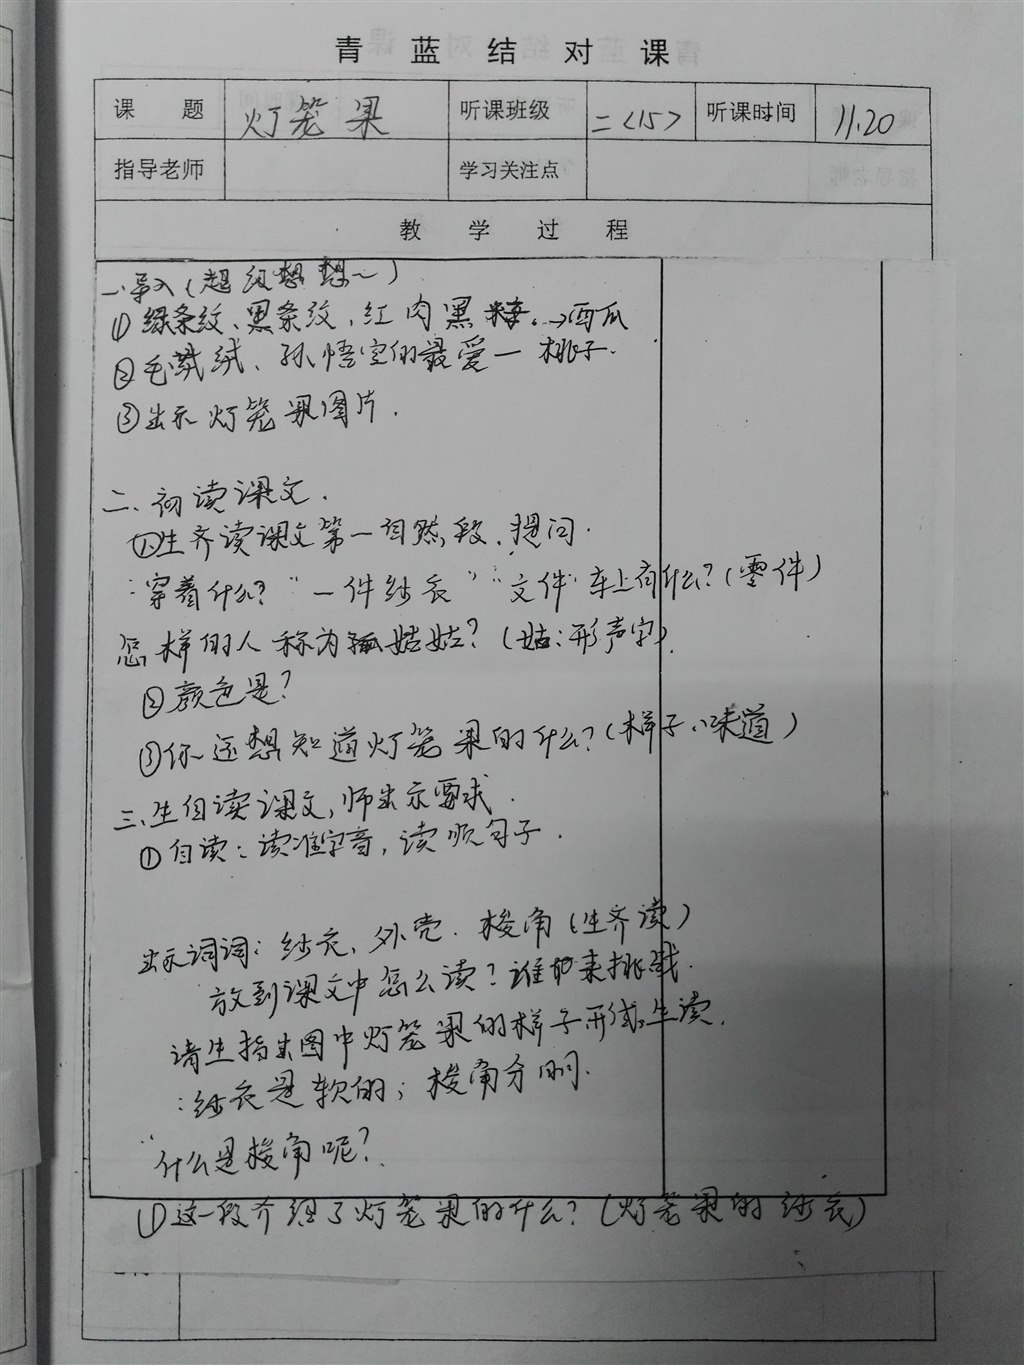 青 蓝 结 对 课
课 题 灯笼果 听课班级 二<15> 听课时间 11.20
指导老师 学习关注点
教 学 过 程
一、导入(超级想想~)
①绿条纹、黑条纹,红肉黑 →西瓜
②毛茸绒、孙悟空的最爱一 桃子.
③出示灯笼果图片.
二、初读课文.
①生齐读课文第一自然段.提问.
:穿着什么?"一件纱衣""文件"车上有什么?(零件)
怎样的人称为姑姑?(姑:形声字).
②颜色是?
③你还想知道灯笼果的什么?(样子、味道)
三、生自读课文,师出示要求.
①自读:读准字音,读顺句子.
出示词词:纱衣、外壳.梭角(生齐读)
放到课文中怎么读?谁来挑战.
请生指出图中灯笼果的样子 生读.
:纱衣是软的;梭角分明.
"什么是梭角呢?
①这一段介绍了灯笼果的什么?(灯笼果的纱衣)